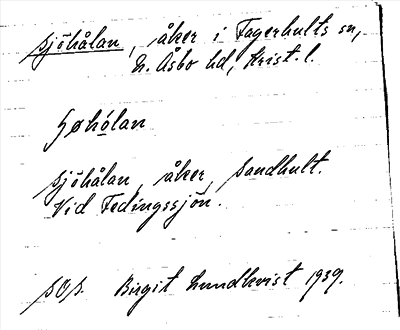 Sjöhålan, åker i Fagerhults sn,
N. Åsbo hd, Krist. l.
Sjöhålan, åker, Sandhult.
Vid Fedingssjön.
SOS. Birgit Lundkvist 1939.